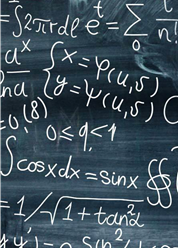 =∫2πrdl e^t = ∑_0 t/n!
a^x/lna { x = φ(u,υ)
y = ψ(u,υ)
=0,(8)
0≤q<1
∫cosxdx=sinx ∯
=1/√1+tan²α